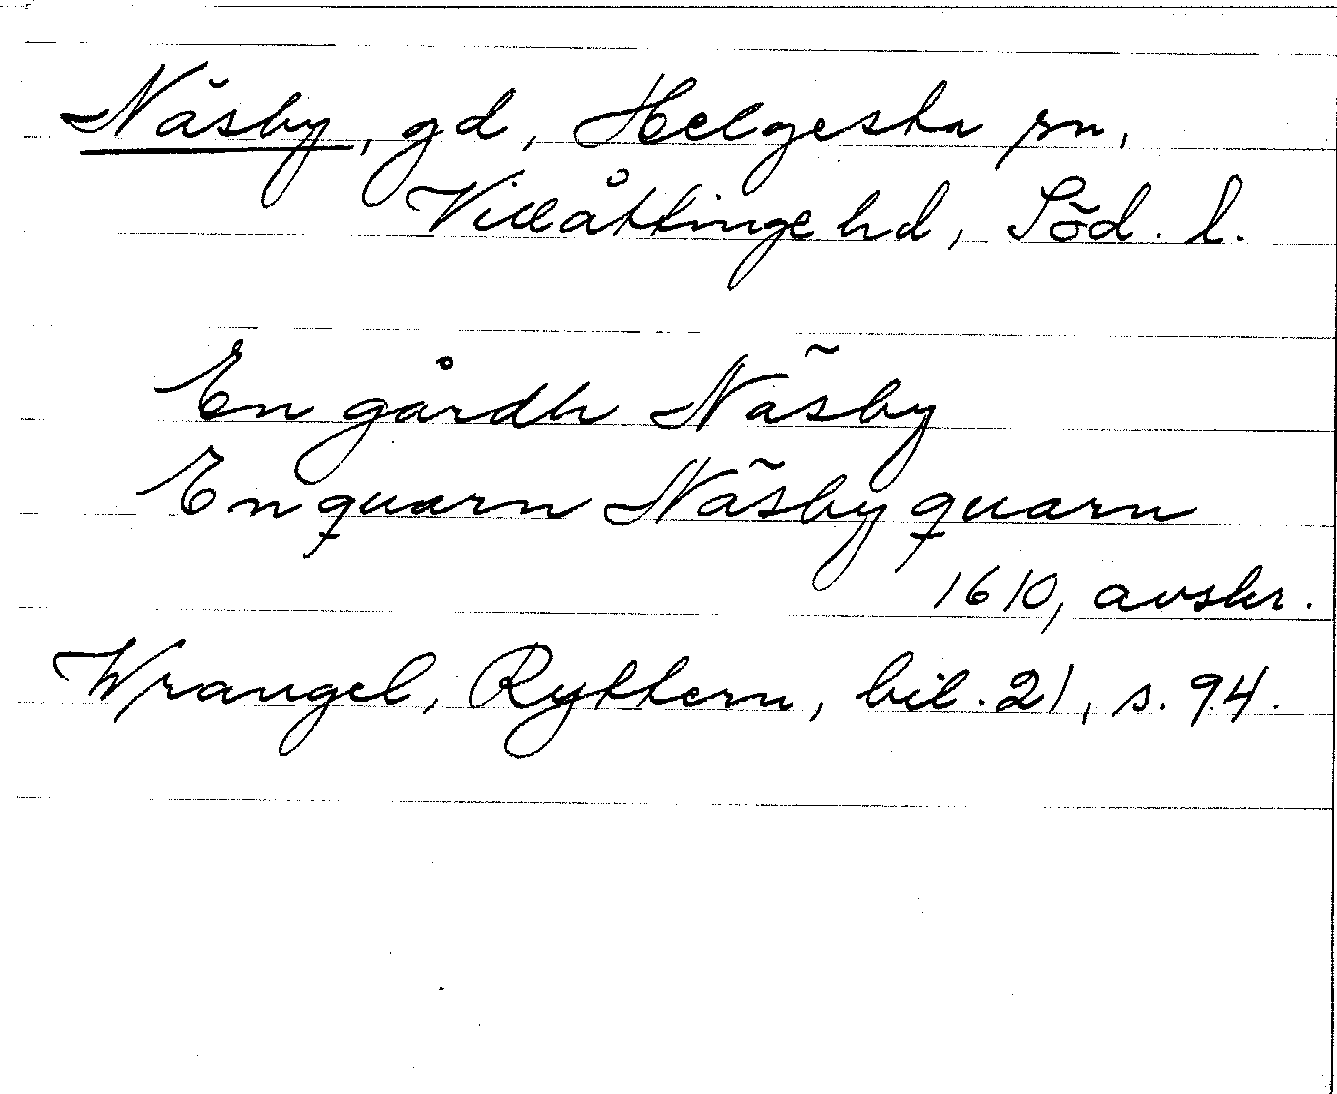 Näsby, gd, Helgesta sn,
Villåttinge hd, Söd. l.
En gårdh Näsby
En quarn Näsby quarn
1610, avskr.
Wrangel, Ryttern, bil. 21, s. 94.